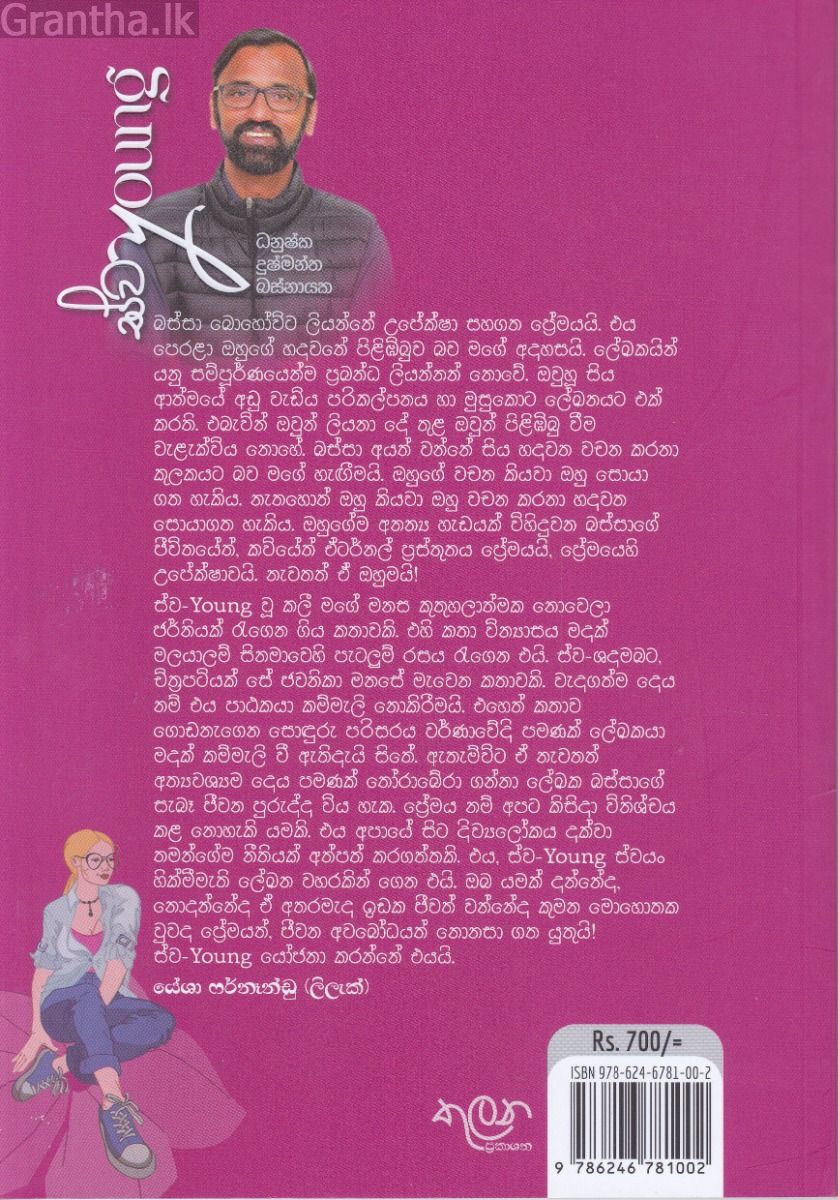 Grantha.lk
ස්ව Young
ධනුෂ්ක
දුෂ්මන්ත
බස්නායක
බස්සා බොහෝවිට ලියන්නේ උපේක්ෂා සහගත ප්‍රේමයයි. එය
පෙරළා ඔහුගේ හදවතේ පිළිඹිබුව බව මගේ අදහසයි. ලේඛකයින්
යනු සම්පූර්ණයෙන්ම ප්‍රබන්ධ ලියන්නන් නොවේ. ඔවුහු සිය
ආත්මයේ අඩු වැඩිය පරිකල්පනය හා මුසුකොට ලේඛනයට එක්
කරති. එබැවින් ඔවුන් ලියනා දේ තුළ ඔවුන් පිළිඹිබු වීම
වැළැක්විය නොහේ. බස්සා අයත් වන්නේ සිය හදවත වචන කරනා
කුලකයට බව මගේ හැඟීමයි. ඔහුගේ වචන කියවා ඔහු සොයා
ගත හැකිය. නැතහොත් ඔහු කියවා ඔහු වචන කරනා හදවත
සොයාගත හැකිය. ඔහුගේම අනන්‍ය හැඩයක් විහිදුවන බස්සාගේ
ජීවිතයේත්, කවියේත් ඒටර්නල් ප්‍රස්තුතය ප්‍රේමයයි, ප්‍රේමයෙහි
උපේක්ෂාවයි. නැවතත් ඒ ඔහුමයි!
ස්ව-Young වූ කලී මගේ මනස කුතුහලාත්මක නොවෙලා
ජර්නියක් රැගෙන ගිය කතාවකි. එහි කතා වින්‍යාසය මදක්
මලයාලම් සිනමාවෙහි පැටලුම් රසය රැගෙන එයි. ස්ව-ශදමබට,
චිත්‍රපටියක් සේ ජවනිකා මනසේ මැවෙන කතාවකි. වැදගත්ම දෙය
නම් එය පාඨකයා කම්මැලි නොකිරීමයි. එහෙත් කතාව
ගොඩනැගෙන සොඳුරු පරිසරය වර්ණාවේදි පමණක් ලේඛකයා
මදක් කම්මැලි වී ඇතිදැයි සිතේ. ඇතැම්විට ඒ නැවතත්
අත්‍යවශ්‍යම දෙය පමණක් තෝරාබේරා ගන්නා ලේඛක බස්සාගේ
සැබෑ ජීවන පුරුද්ද විය හැක. ප්‍රේමය නම් අපට කිසිදා විනිශ්චය
කළ නොහැකි යමකි. එය අපායේ සිට දිව්‍යලෝකය දක්වා
තමන්ගේම නීතියක් අත්පත් කරගත්තකි. එය, ස්ව-Young ස්වයං
හික්මීමැති ලේඛන වහරකින් ගෙන එයි. ඔබ යමක් දන්නේද,
නොදන්නේද ඒ අතරමැද ඉඩක ජීවත් වන්නේද කුමන මොහොතක
වුවද ප්‍රේමයත්, ජීවන අවබෝධයත් නොනසා ගත යුතුයි!
ස්ව-Young යෝජනා කරන්නේ එයයි.
යේශා ෆර්නෑන්ඩු (ලිලැක්)
Rs. 700/=
ISBN 978-624-6781-00-2
තුලන
ප්‍රකාශන
9 786246 781002